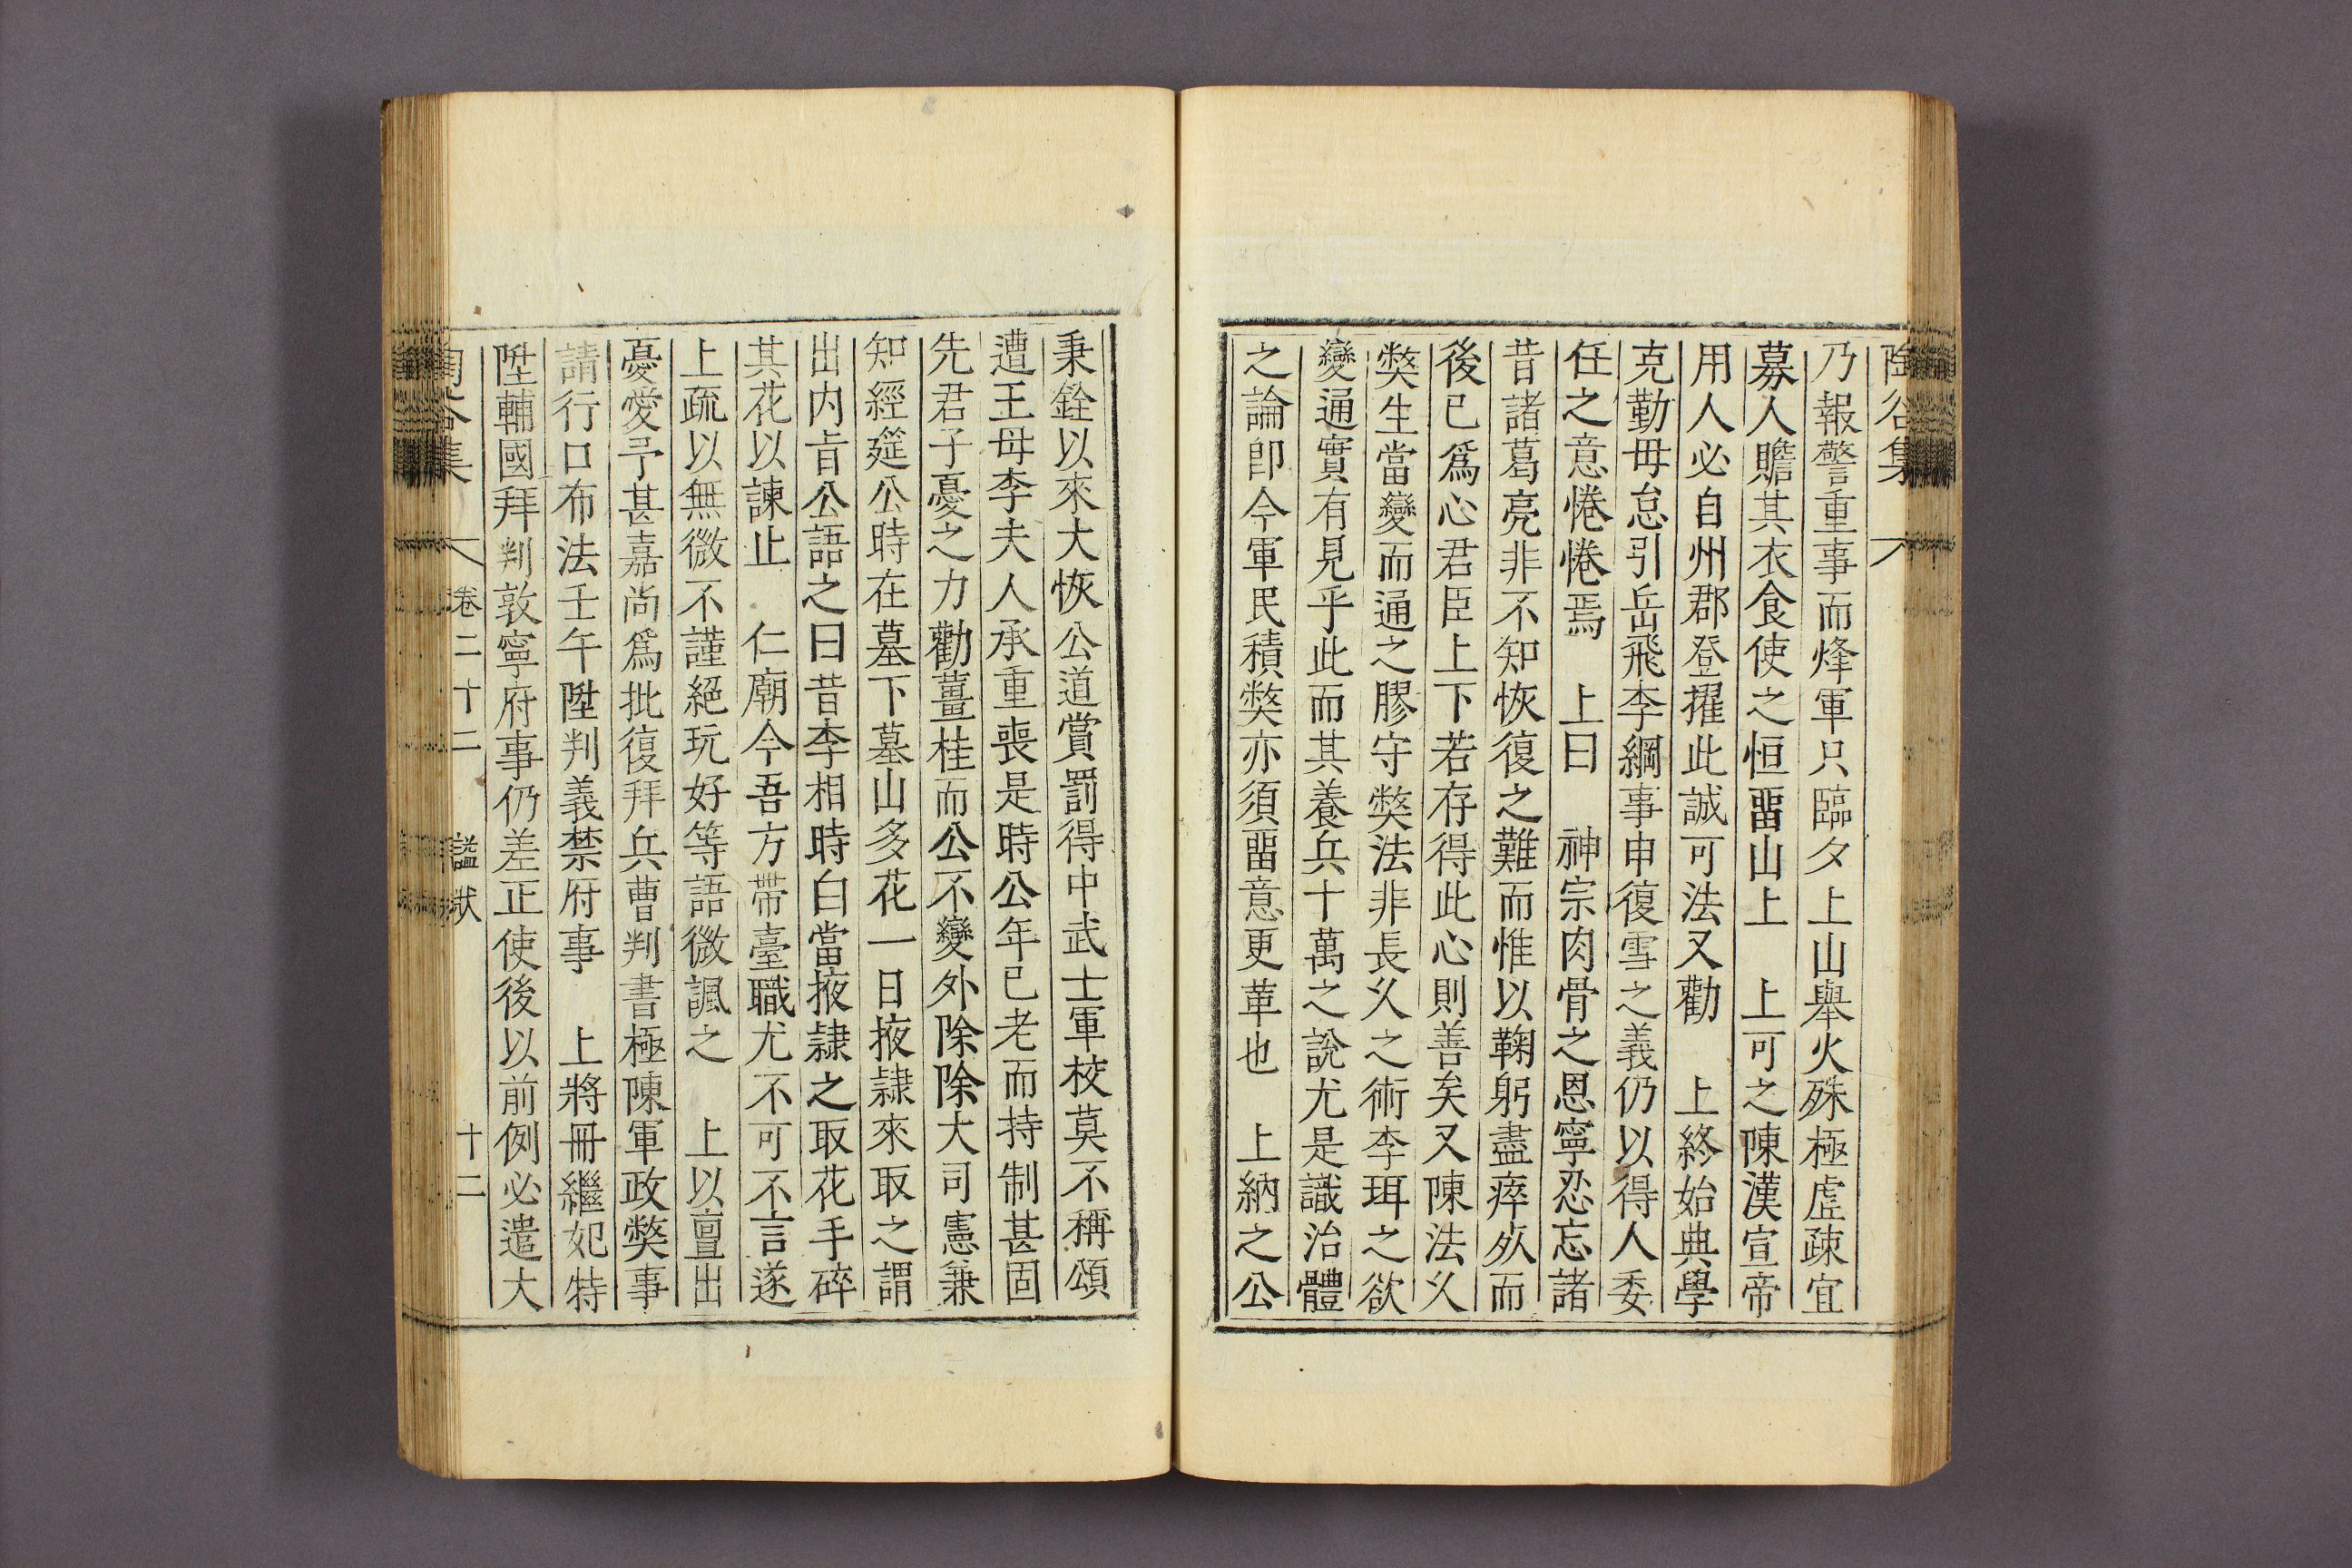 陶谷集
乃報警重事而烽軍只臨夕上山舉火殊極虛疎宜
募人贍其衣食使之恒畱山上 上可之陳漢宣帝
用人必自州郡登擢此誠可法又勸 上終始典學
克勤毋怠引岳飛李綱事申復雪之義仍以得人委
任之意惓惓焉 上曰 神宗肉骨之恩寧忍忘諸
昔諸葛亮非不知恢復之難而惟以鞠躬盡瘁死而
後已爲心君臣上下若存得此心則善矣又陳法久
獘生當變而通之膠守獘法非長久之術李珥之欲
變通實有見乎此而其養兵十萬之說尤是識治體
之論卽今軍民積獘亦須畱意更革也 上納之公
秉銓以來大恢公道賞罰得中武士軍校莫不稱頌
遭王母李夫人承重喪是時公年已老而持制甚固
先君子憂之力勸薑桂而公不變外除除大司憲兼
知經筵公時在墓下墓山多花一日掖隷來取之謂
出內旨公語之曰昔李相時白當掖隷之取花手碎
其花以諫止 仁廟今吾方帶臺職尤不可不言遂
上疏以無微不謹絕玩好等語微諷之 上以亶出
憂愛予甚嘉尙爲批復拜兵曹判書極陳軍政獘事
請行口布法壬午陞判義禁府事 上將冊繼妃特
陞輔國拜判敦寧府事仍差正使後以前例必遣大
陶谷集 卷二十二 諡狀 十二